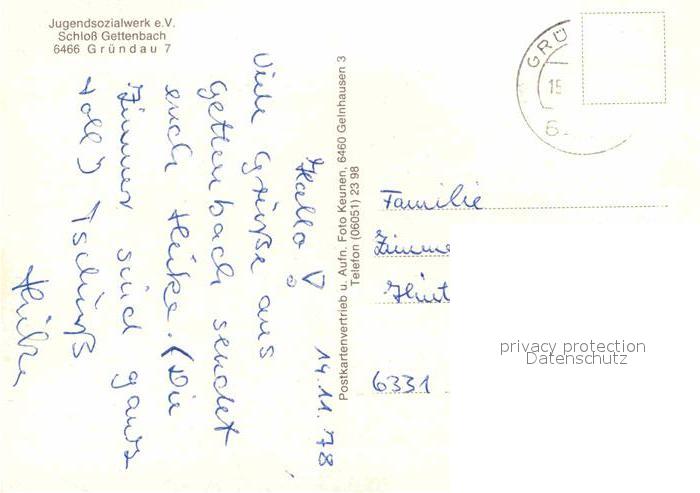 Jugendsozialwerk e.V.
Schloß Gettenbach
6466 Gründau 7
Hallo!
14.11.78
Viele Grüße aus
Gettenbach sendet
euch Heike. (Die
Zimmer sind ganz
toll) Tschüß
Heike
Postkartenvertrieb u. Aufn. Foto Keunen, 6460 Gelnhausen 3
Telefon (06051) 23 98
GRÜ
15
6
Familie
Zimme
Hint
6331
privacy protection
Datenschutz